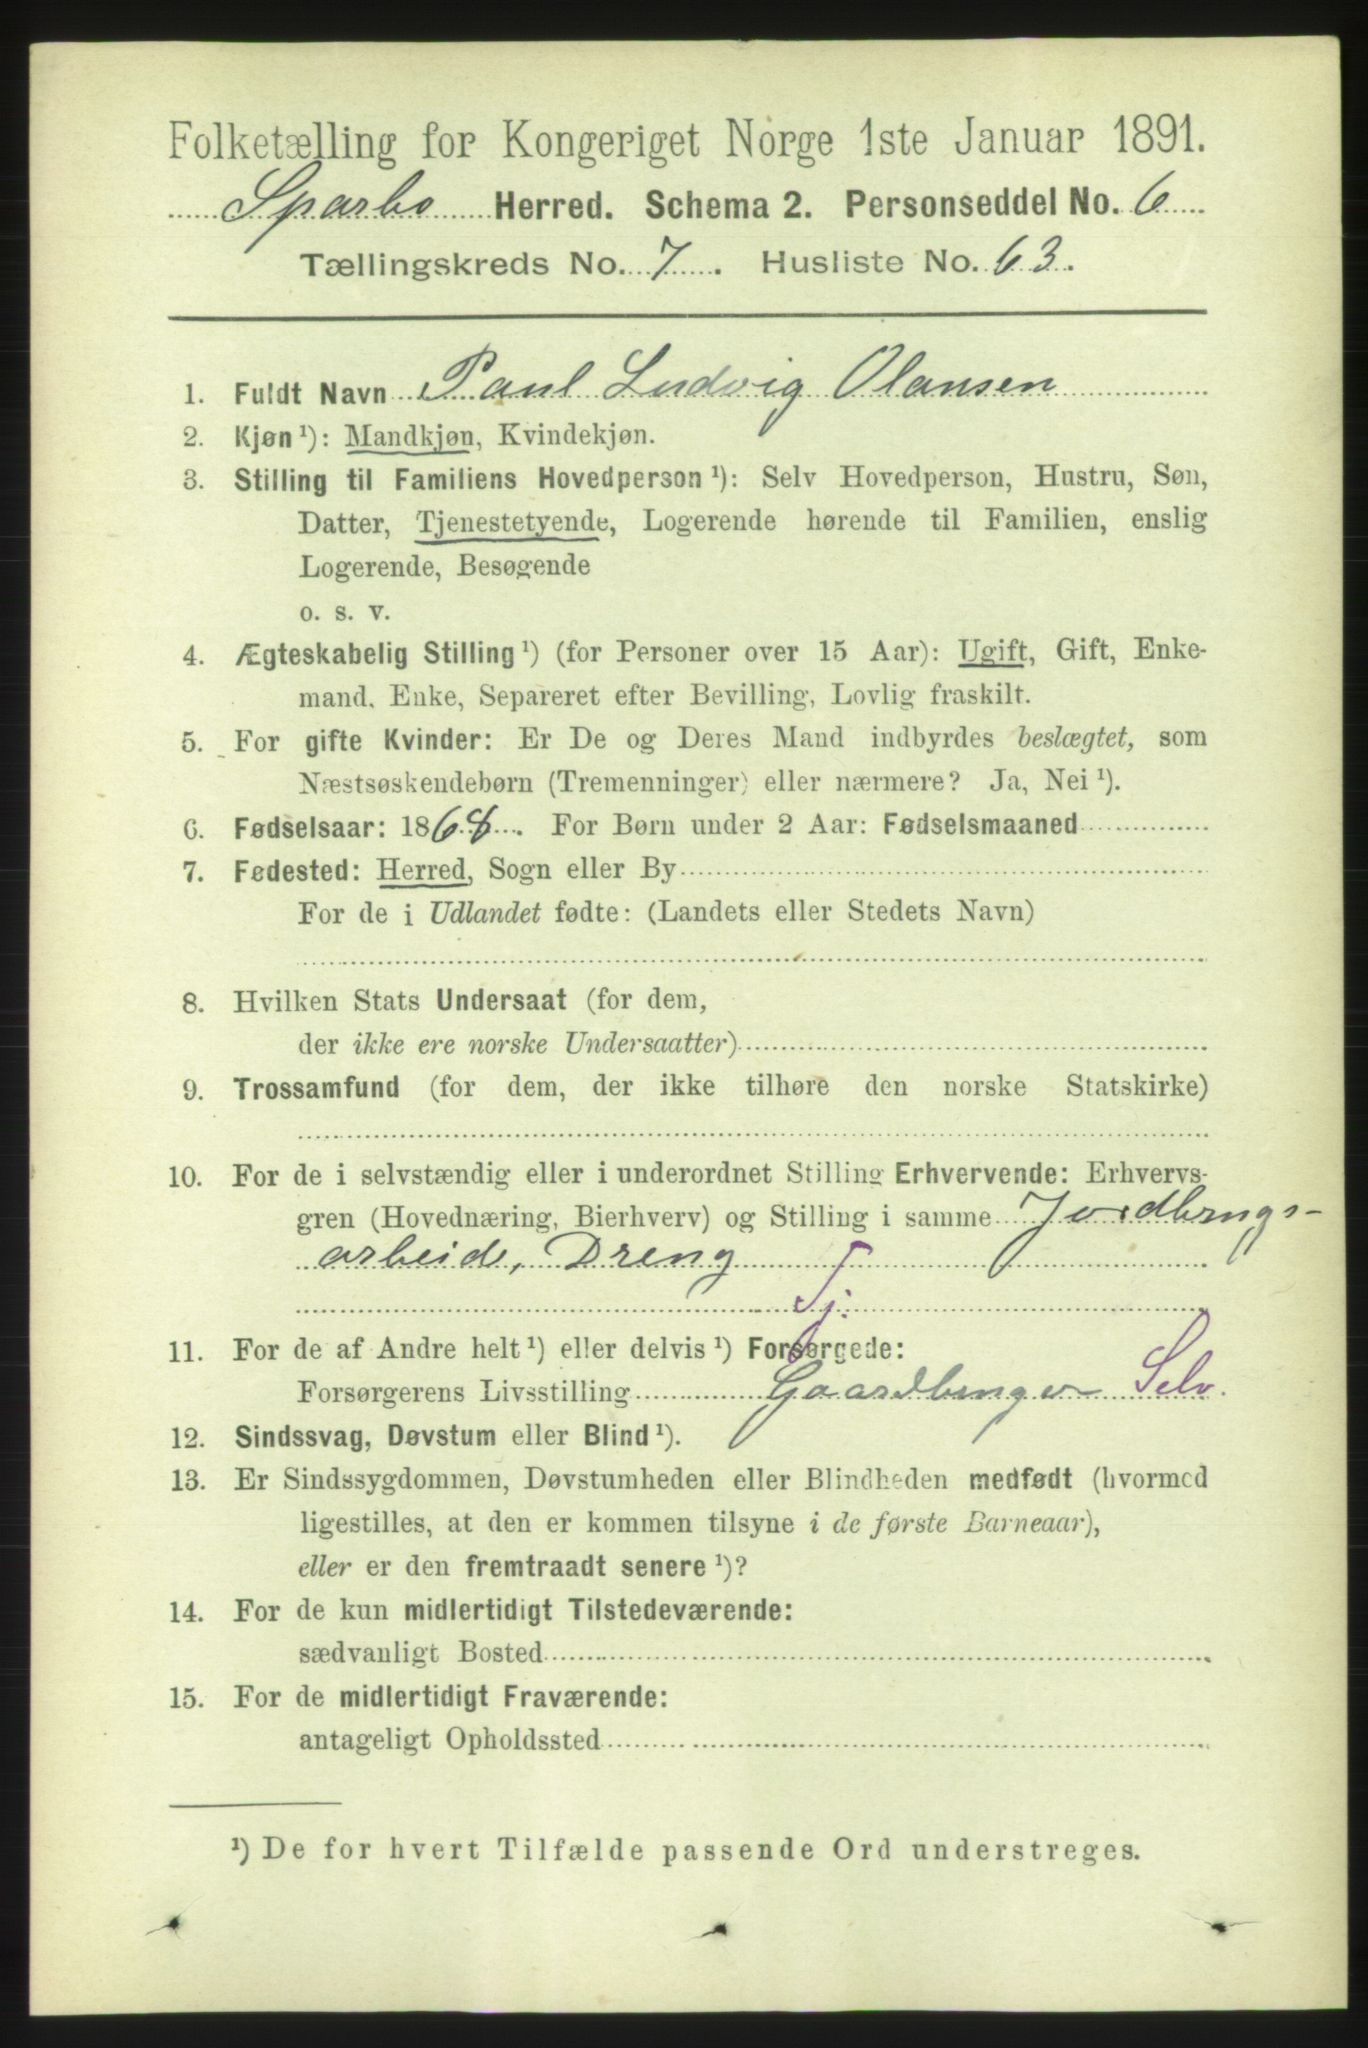 Folketælling for Kongeriget Norge 1ste Januar 1891.
Sparbo Herred. Schema 2. Personseddel No. 6
Tællingskreds No. 7. Husliste No. 63.
1. Fuldt Navn Paul Ludvig Olausen
2. Kjøn ¹): Mandkjøn, Kvindekjøn.
3. Stilling til Familiens Hovedperson ¹): Selv Hovedperson, Hustru, Søn,
Datter, Tjenestetyende, Logerende hørende til Familien, enslig
Logerende, Besøgende
o. s. v.
4. Ægteskabelig Stilling ¹) (for Personer over 15 Aar): Ugift, Gift, Enke-
mand, Enke, Separeret efter Bevilling, Lovlig fraskilt.
5. For gifte Kvinder: Er De og Deres Mand indbyrdes beslægtet, som
Næstsøskendebørn (Tremenninger) eller nærmere? Ja, Nei ¹).
6. Fødselsaar: 1868. For Børn under 2 Aar: Fødselsmaaned
7. Fødested: Herred, Sogn eller By
For de i Udlandet fødte: (Landets eller Stedets Navn)
8. Hvilken Stats Undersaat (for dem,
der ikke ere norske Undersaatter)
9. Trossamfund (for dem, der ikke tilhøre den norske Statskirke)
10. For de i selvstændig eller i underordnet Stilling Erhvervende: Erhvervs-
gren (Hovednæring, Bierhverv) og Stilling i samme Jordbrugs-
arbeide, Dreng
Tj.
11. For de af Andre helt ¹) eller delvis ¹) Forsørgede:
Forsørgerens Livsstilling Gaardbruger Selv.
12. Sindssvag, Døvstum eller Blind ¹).
13. Er Sindssygdommen, Døvstumheden eller Blindheden medfødt (hvormed
ligestilles, at den er kommen tilsyne i de første Barneaar),
eller er den fremtraadt senere ¹)?
14. For de kun midlertidigt Tilstedeværende:
sædvanligt Bosted
15. For de midlertidigt Fraværende:
antageligt Opholdssted
¹) De for hvert Tilfælde passende Ord understreges.